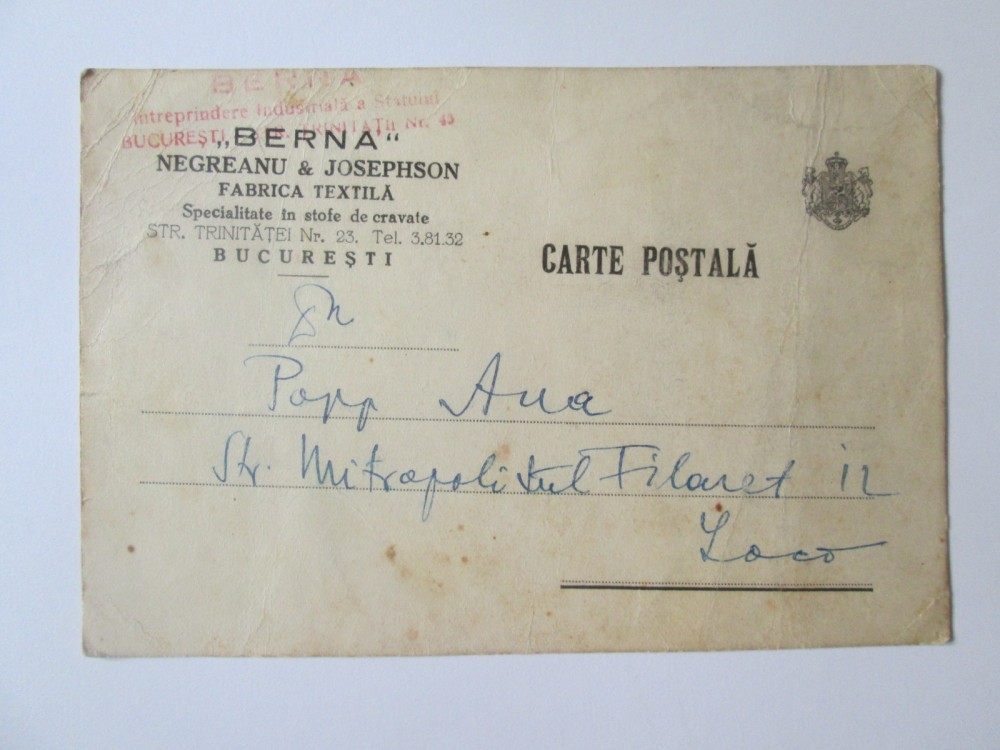 BERNA
Intreprindere Industrială a Statului
BUCUREŞTI, STR. TRINITAŢII Nr. 43
„BERNA“
NEGREANU & JOSEPHSON
FABRICA TEXTILĂ
Specialitate în stofe de cravate
STR. TRINITĂŢEI Nr. 23. Tel. 3.81.32
BUCUREŞTI
CARTE POŞTALĂ
Popp Ana
Str. Mitropolitul Filaret 12
Loco